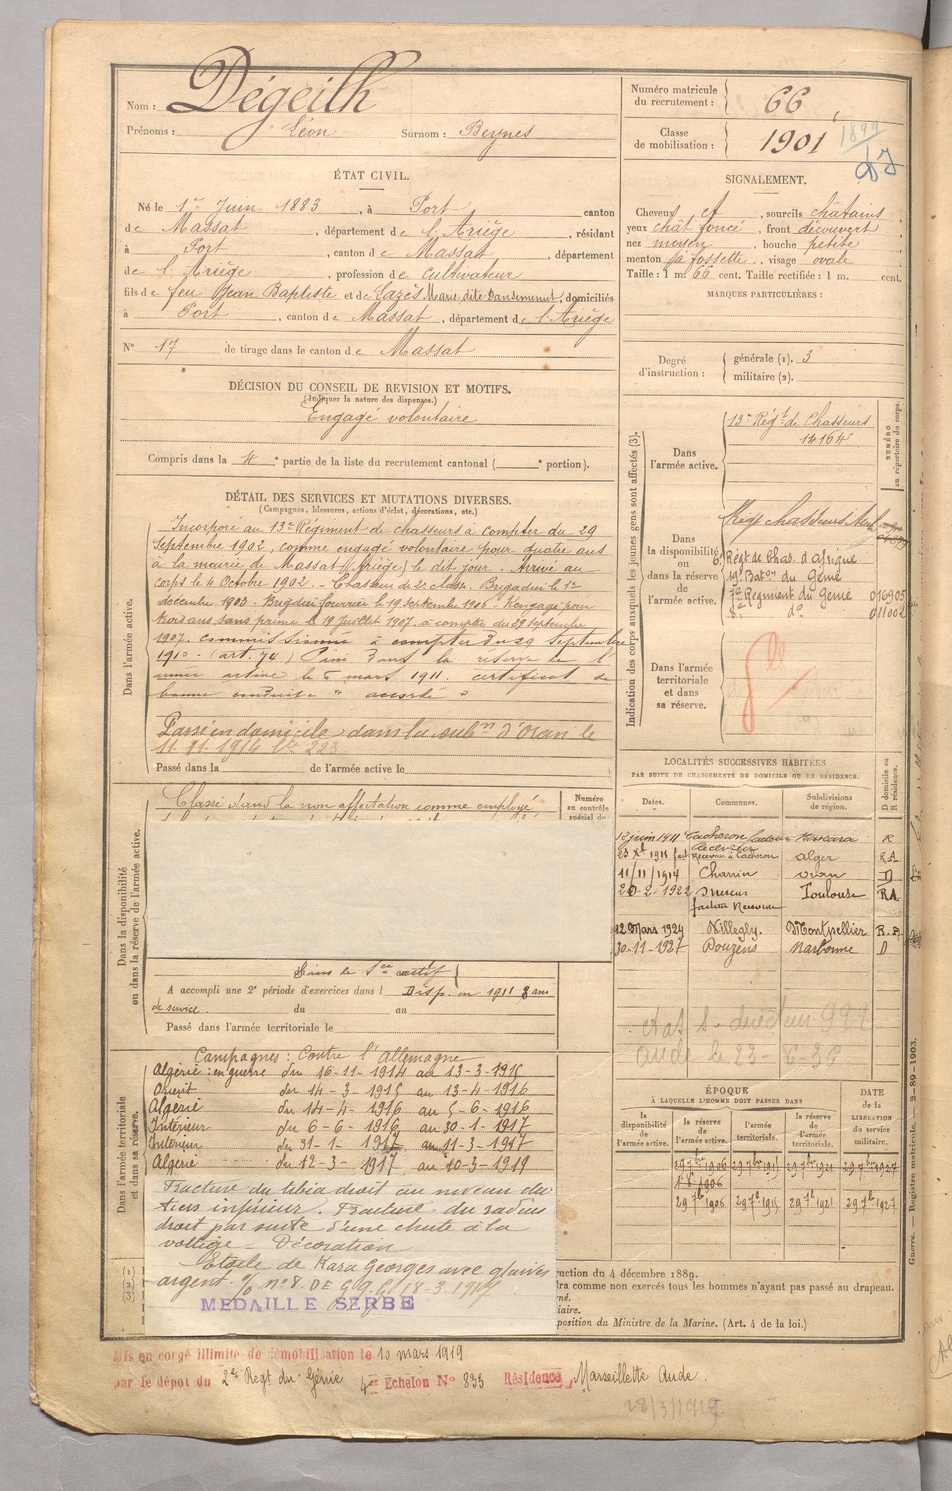 Nom : Dégeilh
Prénoms : Léon Surnom : Beynes
ÉTAT CIVIL.
Né le 1er Juin 1883, à Port canton
de Massat, département de l'Ariège, résidant
à Port, canton de Massat, département
de l'Ariège, profession de Cultivateur
fils de feu Jean Baptiste et de Cazès Marie, dite Dansemenut, domiciliés
à Port, canton de Massat, département de l'Ariège
N° 17 de tirage dans le canton de Massat
DÉCISION DU CONSEIL DE REVISION ET MOTIFS.
(Indiquer la nature des dispenses.)
Engagé volontaire
Compris dans la 4e partie de la liste du recrutement cantonal ( e portion).
DÉTAIL DES SERVICES ET MUTATIONS DIVERSES.
(Campagnes, blessures, actions d'éclat, décorations, etc.)
Dans l'armée active.
Incorporé au 13e Régiment de chasseurs à compter du 29
Septembre 1902, comme engagé volontaire pour quatre ans
à la mairie de Massat (Ariège) le dit jour. Arrivé au
corps le 4 Octobre 1902. - Chasseur de 2e classe. Brigadier le 1er
décembre 1903 - Brigadier fourrier le 19 septembre 1906. Rengagé pour
trois ans sans prime le 19 Juillet 1907 à compter du 29 Septembre
1907. commissionné à compter du 29 Septembre
1910 - (art. 74) Passé dans la réserve de l'
armée active le 5 mars 1911. certificat de
bonne conduite " accordé "
Passé en domicile dans la subn d'Oran le
11 11 1914
Passé dans la de l'armée active le
Dans la disponibilité
ou dans la réserve de l'armée active.
Classé dans la non affectation comme employé
Numéro
au contrôle
spécial du
Dans le Sce actif
A accompli une 2e période d'exercices dans l Disp. en 1911 8 ans
de service. du au
Passé dans l'armée territoriale le
Dans l'armée territoriale
et dans sa réserve.
Campagnes : Contre l'Allemagne
Algérie : en guerre du 16-11-1914 au 13-3-1915
Orient du 14-3-1915 au 13-4-1916
Algérie du 14-4-1916 au 5-6-1916
Intérieur du 6-6-1916 au 30-1-1917
Intérieur du 31-1-1917 au 11-3-1917
Algérie du 12-3-1917 au 10-3-1919
Fracture du tibia droit au niveau du
tiers inférieur. Fracture du radius
droit par suite d'une chute à la
voltige - Décoration
Etoile de Kara Georges avec glaives
argent. o/ n° 8 DE GQG 18-3-1917
MEDAILLE SERBE
Mis en congé illimité de démobilisation le 10 mars 1919
par le dépôt du 2e Regt du Génie 4er Echelon N° 835 Résidence Marseillette Aude.
28/3/1919
Numéro matricule
du recrutement : 66
Classe
de mobilisation : 1901
1899
SIGNALEMENT.
Cheveux et, sourcils châtains
yeux chât foncé, front découvert
nez moyen, bouche petite
menton à fossette, visage ovale
Taille : 1 m. 66 cent. Taille rectifiée : 1 m. cent.
MARQUES PARTICULIÈRES :
Degré
d'instruction :
générale (1). 3
militaire (2).
Indication des corps auxquels les jeunes gens sont affectés (3).
NUMÉRO
au répertoire du corps.
Dans
l'armée active.
13e Régt de Chasseurs
Dans
la disponibilité
ou
dans la réserve
de
l'armée active.
6e Régt de Chas. d'Afrique
19e Baton du Génie
7e Régiment du Génie 016905
2e do 011002
Dans l'armée
territoriale
et dans
sa réserve.
LOCALITÉS SUCCESSIVES HABITÉES
PAR SUITE DE CHANGEMENTS DE DOMICILE OU DE RÉSIDENCE.
Dates. Communes. Subdivisions de région. D domicile ou R résidence.
12 juin 1911 Cacherou facteur receveur Mascara R
23 Xbre 1911 fact Receveur à Cacherou alger RA
11/11/1914 Charrier oran D
20-2-1922 facteur Receveur Toulouse RA
12 Mars 1924 Villegly. Montpellier R.A
30-11-1927 Douzens Narbonne D
aude le 23-
ÉPOQUE
À LAQUELLE L'HOMME DOIT PASSER DANS
la disponibilité de l'armée active.
la réserve de l'armée active.
l'armée territoriale.
la réserve de l'armée territoriale.
DATE de la LIBÉRATION du service militaire.
29 7bre 1906 29 7bre 1915 29 7bre 1921 29 7bre 1927
1906
29 7bre 1906 29 7bre 1915 29 7bre 1921 29 7bre 1927
(1)
(2)
(3)
ruction du 4 décembre 1889.
dra comme non exercés tous les hommes n'ayant pas passé au drapeau.
né.
iaire.
position du Ministre de la Marine. (Art. 4 de la loi.)
Guerre. — Registre matricule. — 2-89-1903.